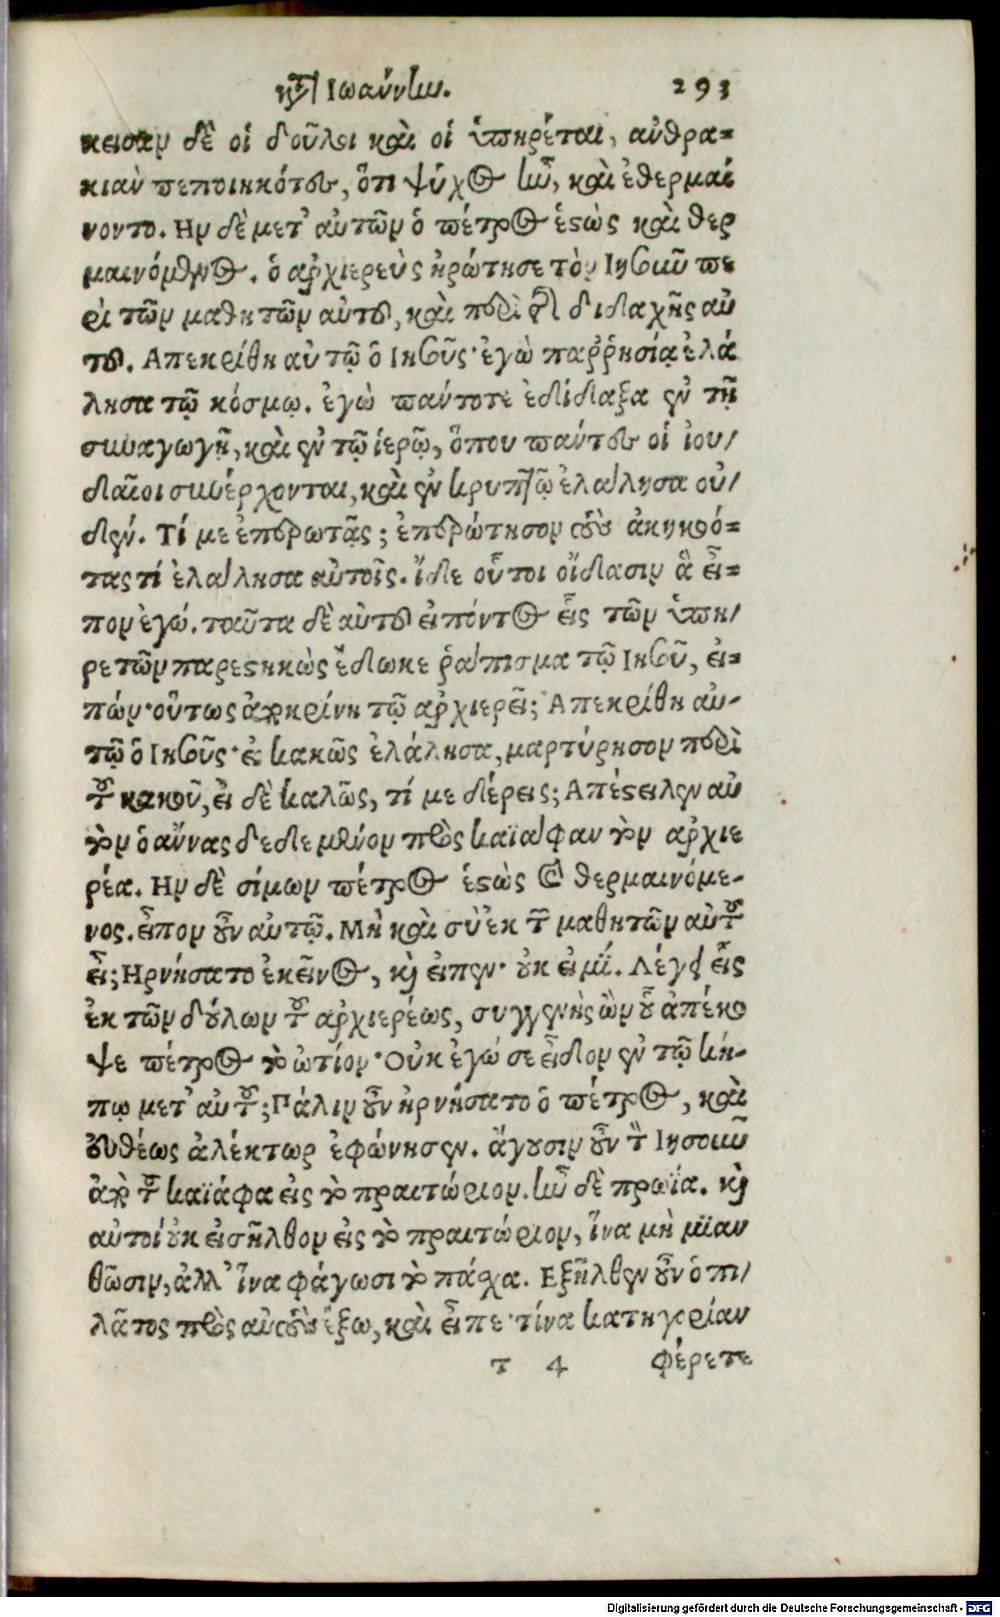 κτ̀ Ἰωάννην. 293
κεισαν δὲ οἱ δοῦλοι καὶ οἱ ὑπηρέται, ἀνθρα=
κιὰν πεποιηκότες, ὅτι ψύχος ἦν, καὶ ἐθερμαί
νοντο. Ην δὲ μετ' αὐτῶν ὁ πέτρος ἑστὼς καὶ θερ
μαινόμενος. ὁ ἀρχιερεὺς ἠρώτησε τὸν Ιησοῦν πε
ρὶ τῶν μαθητῶν αὐτοῦ, καὶ περὶ τῆς διδαχῆς αὐ
τοῦ. Απεκρίθη αὐτῷ ὁ Ιησοῦς· ἐγὼ παῤῥησίᾳ ἐλά
λησα τῷ κόσμῳ. ἐγὼ πάντοτε ἐδίδαξα ἐν τῇ
συναγωγῇ, καὶ ἐν τῷ ἱερῷ, ὅπου πάντες οἱ ἰου/
δαῖοι συνέρχονται, καὶ ἐν κρυπτῷ ἐλάλησα οὐ/
δέν. Τί με ἐπερωτᾷς; ἐπερώτησον τοὺς ἀκηκοό=
τας τί ἐλάλησα αὐτοῖς. ἴδε οὗτοι οἴδασιν ἃ εἶ=
πον ἐγώ. ταῦτα δὲ αὐτοῦ εἰπόντος εἷς τῶν ὑπη/
ρετῶν παρεστηκὼς ἔδωκε ῥάπισμα τῷ Ιησοῦ, εἰ=
πών· οὕτως ἀποκρίνῃ τῷ ἀρχιερεῖ; Απεκρίθη αὐ-
τῷ ὁ Ιησοῦς· εἰ κακῶς ἐλάλησα, μαρτύρησον περὶ
τοῦ κακοῦ, εἰ δὲ καλῶς, τί με δέρεις; Απέστειλεν αὐ
τὸν ὁ ἄννας δεδεμένον πρὸς καϊάφαν τὸν ἀρχιε
ρέα. Ην δὲ σίμων πέτρος ἑστὼς καὶ θερμαινόμε-
νος. εἶπον οὖν αὐτῷ. Μὴ καὶ σὺ ἐκ τῶν μαθητῶν αὐτοῦ
εἶ; Ηρνήσατο ἐκεῖνος, καὶ εἶπεν· οὐκ εἰμί. Λέγει εἷς
ἐκ τῶν δούλων τοῦ ἀρχιερέως, συγγενὴς ὢν οὗ ἀπέκο
ψε πέτρος τὸ ὠτίον· Οὐκ ἐγώ σε εἶδον ἐν τῷ κή-
πῳ μετ' αὐτοῦ; Πάλιν οὖν ἠρνήσατο ὁ πέτρος, καὶ
εὐθέως ἀλέκτωρ ἐφώνησεν. ἄγουσιν οὖν τὸν Ιησοῦν
ἀπὸ τοῦ καϊάφα εἰς τὸ πραιτώριον. ἦν δὲ πρωΐα. καὶ
αὐτοὶ οὐκ εἰσῆλθον εἰς τὸ πραιτώριον, ἵνα μὴ μιαν
θῶσιν, ἀλλ' ἵνα φάγωσι τὸ πάσχα. Εξῆλθεν οὖν ὁ πι/
λᾶτος πρὸς αὐτοὺς ἔξω, καὶ εἶπε· τίνα κατηγορίαν
τ 4 φέρετε
Digitalisierung gefördert durch die Deutsche Forschungsgemeinschaft - DFG